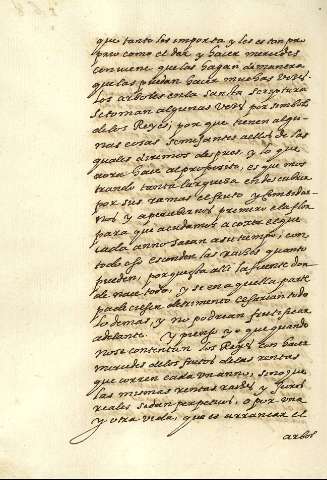 que tanto les importa y les es tan pro
prio como el dar y hacer mercedes
conviene que las hagan de manera
que las puedan hacer muchas veces.
los arboles en la sancta scriptura
se toman algunas veces por simbolo
de los Reyes, por que tienen algu-
nas cosas semejantes a ellos de las
quales diremos despues, y lo que
aora hace al proposito, es que mos
trando tanta largueza en descubrir
por sus ramas el fruto y combidar
nos y apercibirnos primero con la flor
para que acudamos a cojer el que
cada anno sacan a su tiempo; con
todo eso esconden las raices quanto
pueden, porque esta alli la fuente don
de nace todo, y si en aquella parte
padeciesen detrimento cesaria todo
lo demas, y no podrian fructificar
adelante. Y pienso yo que quando
no se contentan los Reyes con hacer
mercedes de los frutos de las rentas
que corren cada un anno, sino que
las mismas rentas raices y juros
reales se dan perpetuos, o por una
y otra vida, que es arrancar el
arbol